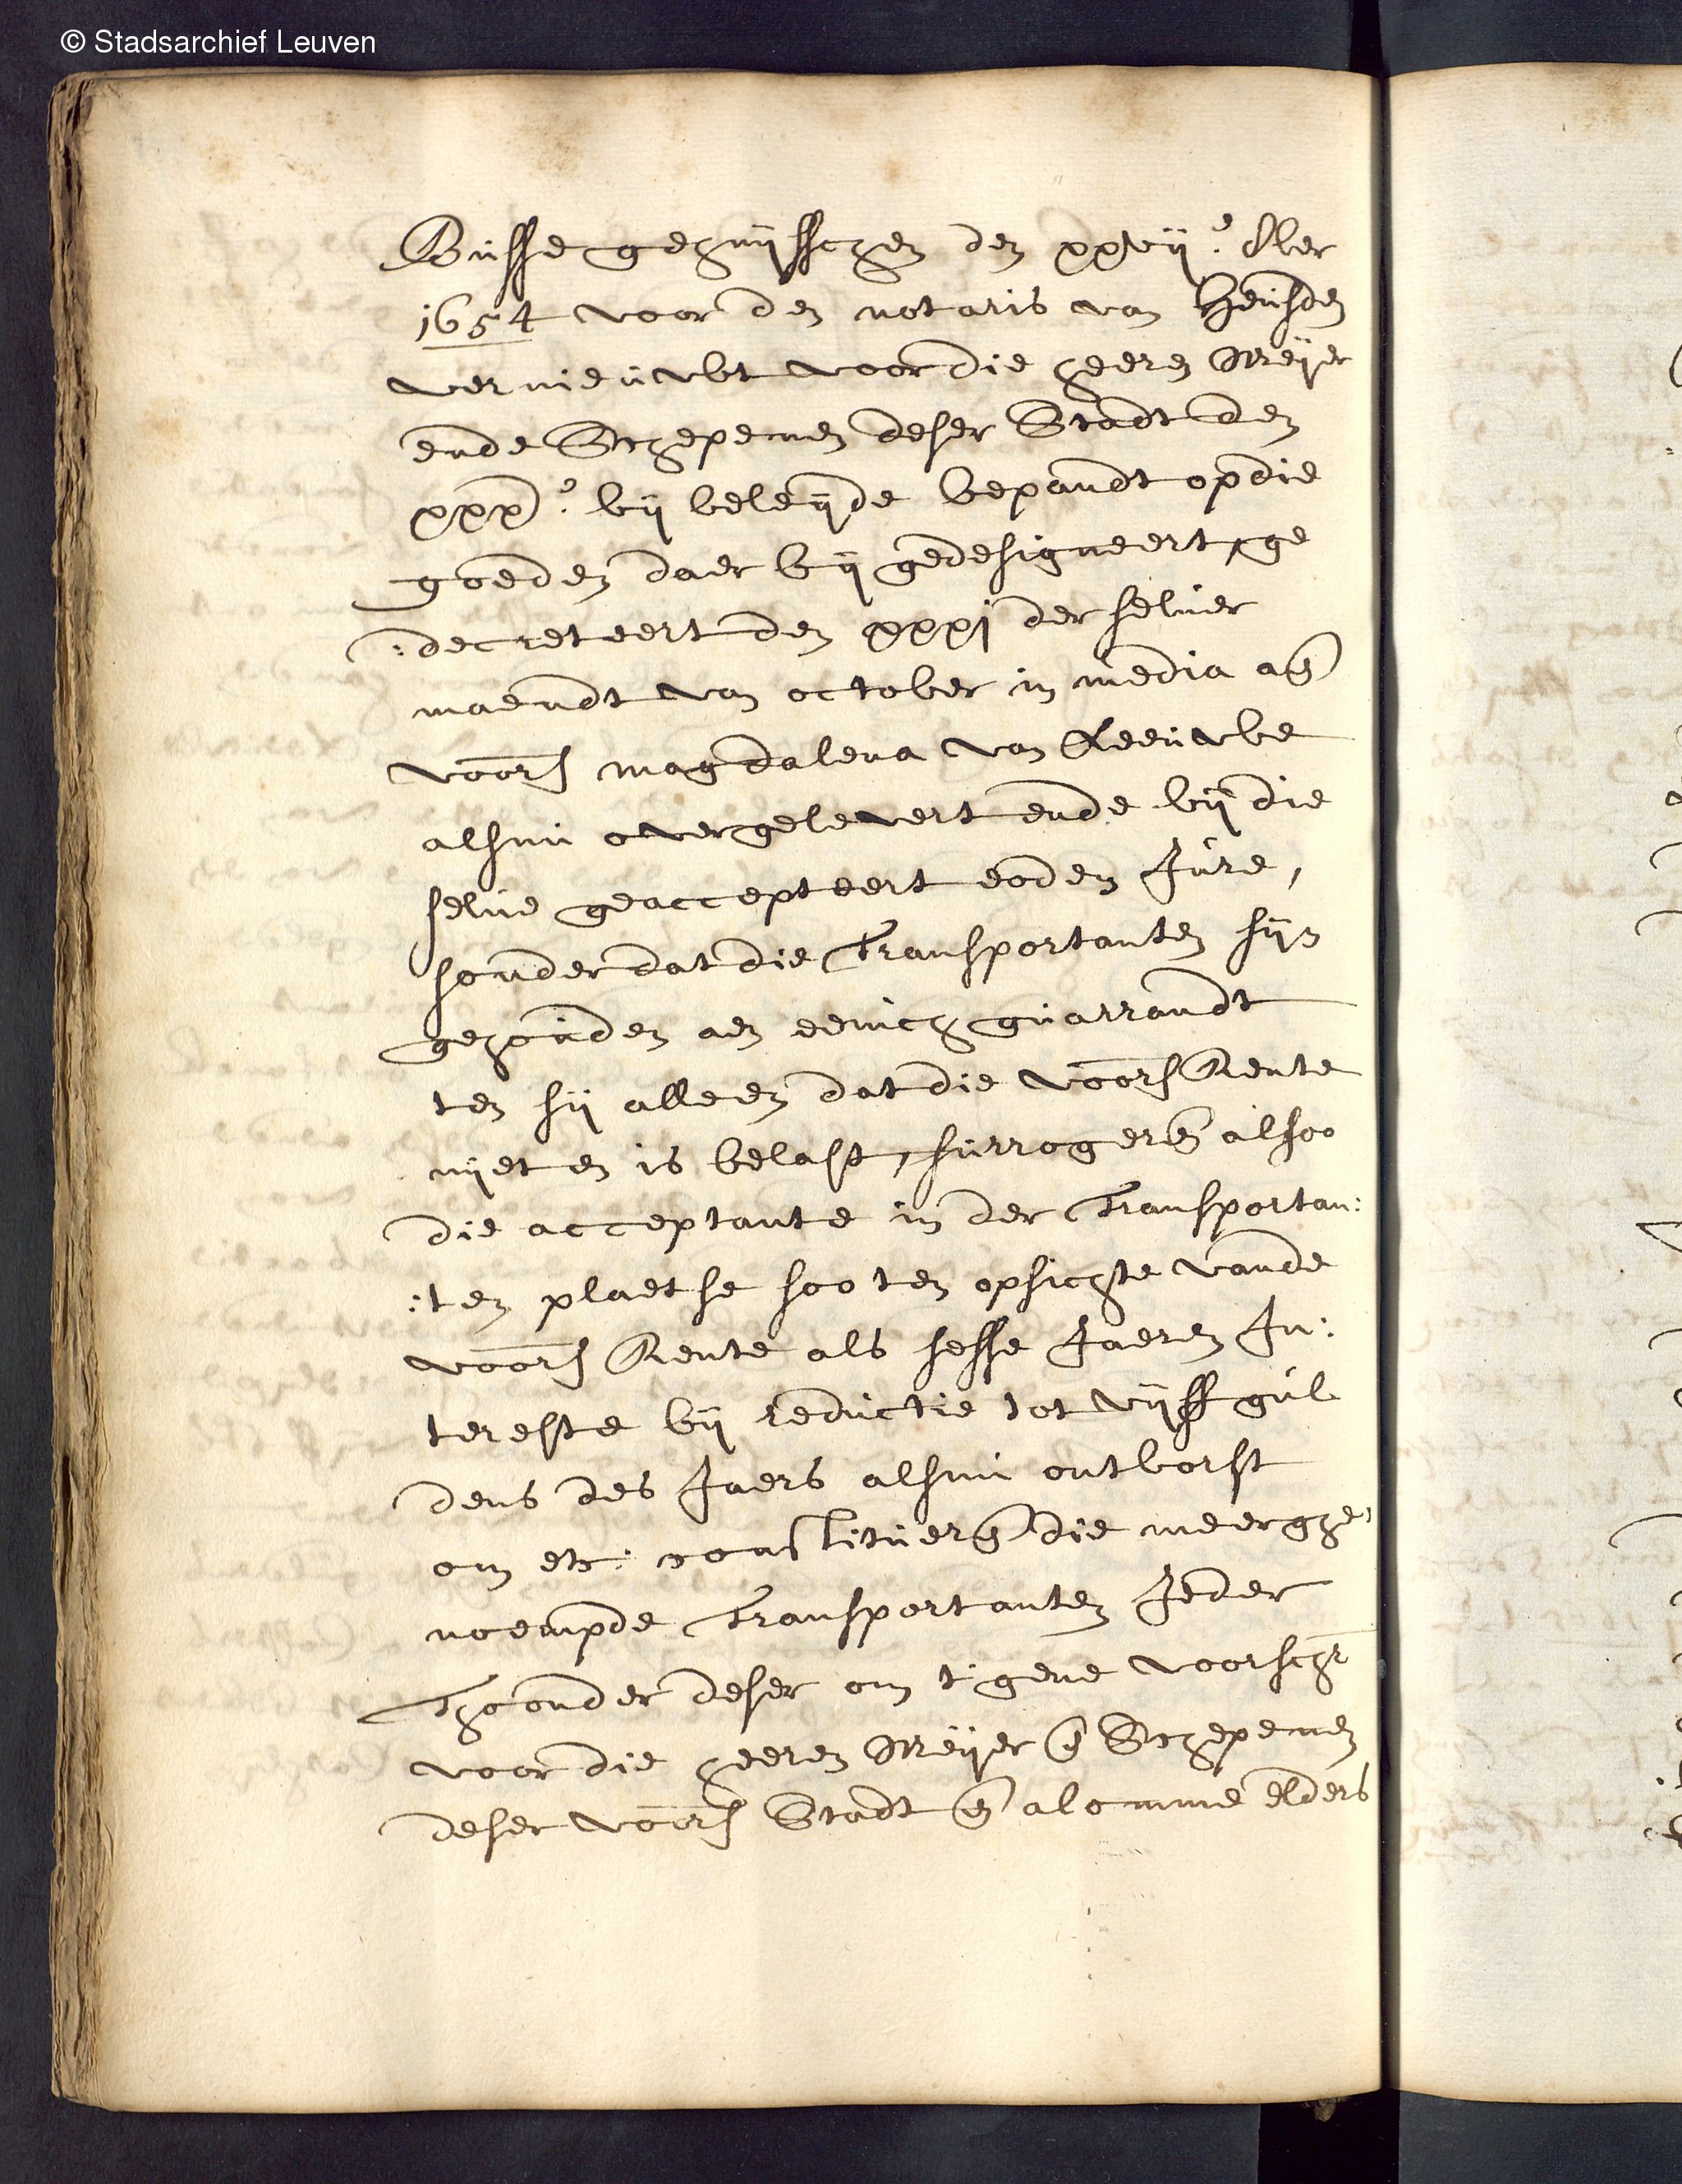 © Stadsarchief Leuven
Busse gehuijsschen den xxvij.e 8ber
1654 voor den notaris van Heusden
vernieuwbt voor die heeren Meijer
ende Schepenen deser Stadt den
xxx.e bij beleijde bepandt op die
goeden daer bij gedesigneert, ge
:decreteert den xxxj der selver
maendt van october in media aen
voors magdalena van Leeuwbe
alsnu overgelevert ende bij die
selve geaccepteert eodem Jure,
sonder dat die Transportanten sijn
gehouden aen eenich guarrandt
ten sij alleen dat die voors Rente
niet en is belast, surrogeren alsoo
die acceptante in der Transportan:
:ten plaetse soo ten opsichte vande
voors Rente als sesse Jaeren In:
tereste bij reductie tot vijff gul
dens des Jaers alsnu ontborst
om etc: constitueren die meerghe:
noempde Transportanten Jeder
Thoonder deser om t'gene voorschr
voor die heeren Meijer en Schepenen
deser voors Stadt en alomme elders